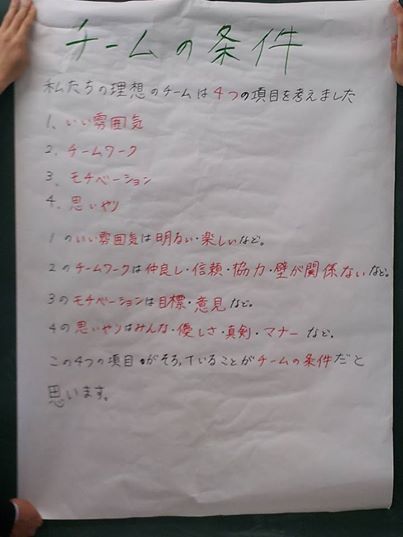 チームの条件
私たちの理想のチームは4つの項目を考えました
1、いい雰囲気
2、チームワーク
3、モチベーション
4、思いやり
1のいい雰囲気は明るい・楽しいなど。
2のチームワークは仲良し・信頼・協力・壁が関係ないなど。
3のモチベーションは目標・意見など。
4の思いやりはみんな・優しさ・真剣・マナーなど。
この4つの項目がそろっていることがチームの条件だと
思います。